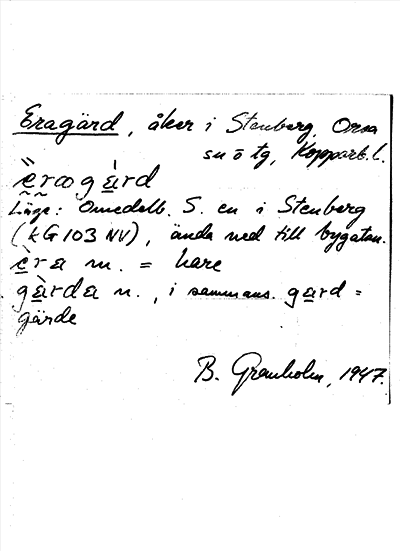 Eragärd, åker i Stenberg, Orsa
sn o tg, Kopparb. l.
èrагàrd
Läge: Omedelb. S. en i Stenberg
(KG 103 NV), ända ned till bygatan.
èra m. = hare
gàrda n., i sammans. gard =
gärde
B. Granholm, 1947.